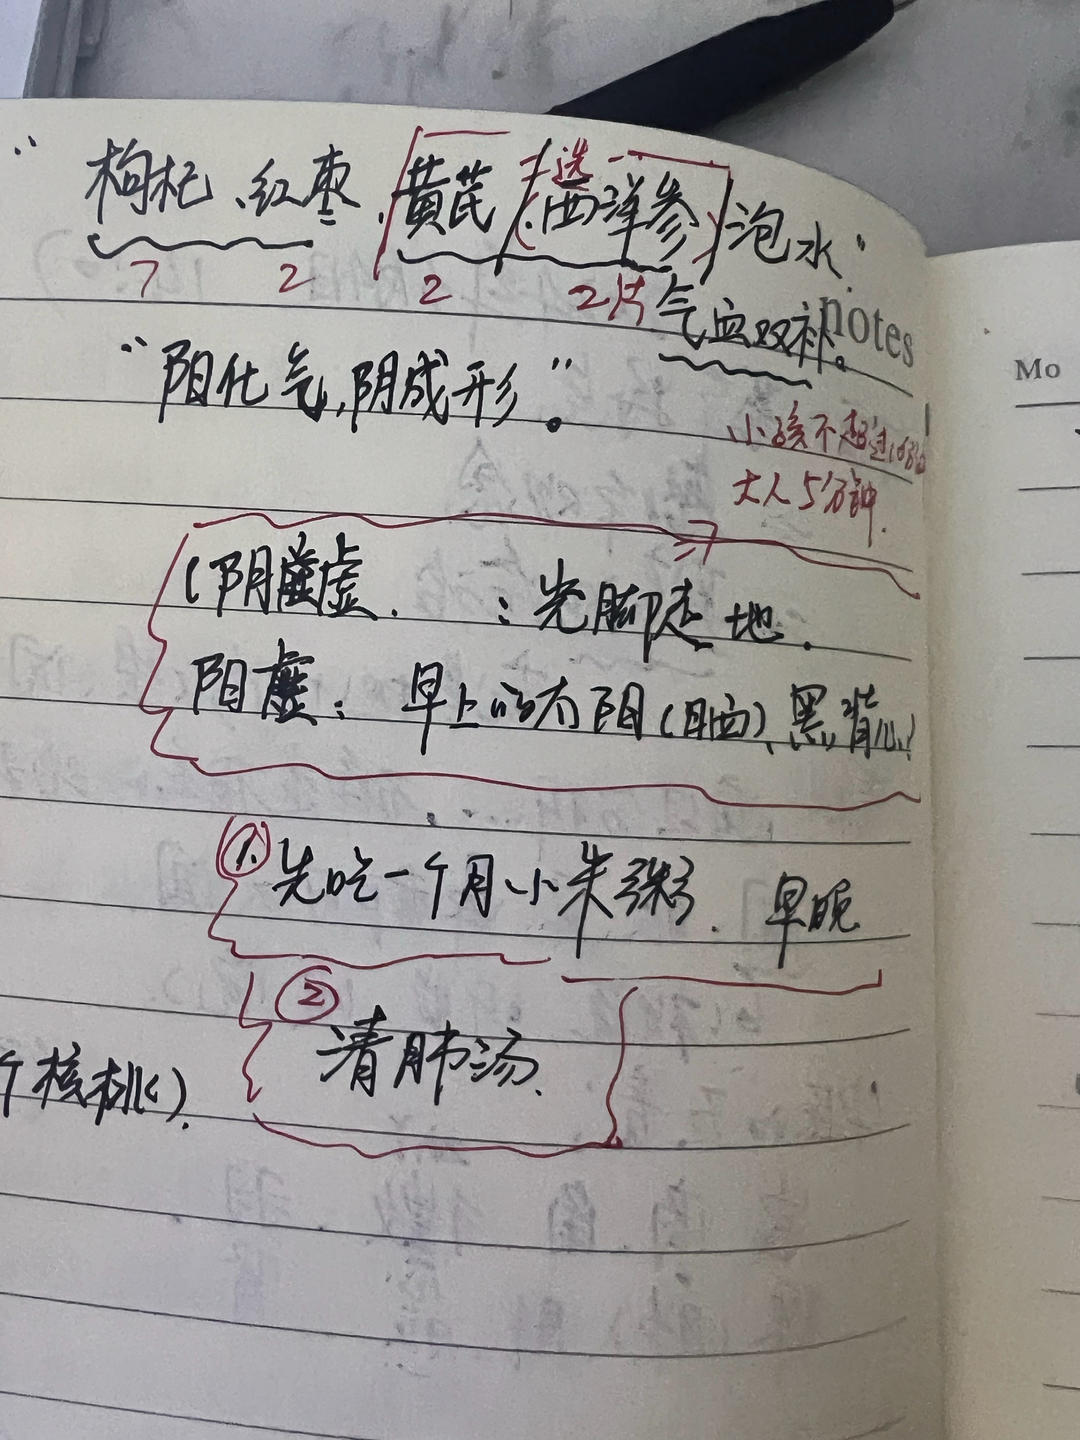 二选一
“枸杞、红枣、黄芪/西洋参/泡水”
7 2 2 2片 气血双补。
notes
Mo
“阳化气,阴成形”。
小孩不超过
大人5分钟.
(阴虚. :光脚走地.
阳虚: 早上的太阳(晒)、黑背心)
①.先吃一个月小米粥. 早晚
②
清肺汤.
个核桃).